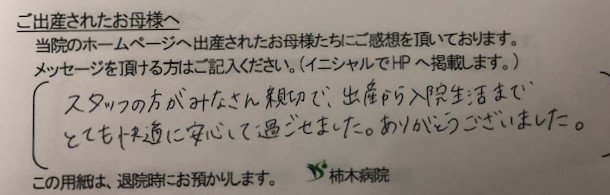 ご出産されたお母様へ
当院のホームページへ出産されたお母様たちにご感想を頂いております。
メッセージを頂ける方はご記入ください。(イニシャルでHPへ掲載します。)
スタッフの方がみなさん親切で、出産から入院生活まで
とても快適に安心して過ごせました。ありがとうございました。
この用紙は、退院時にお預かりします。 柿木病院